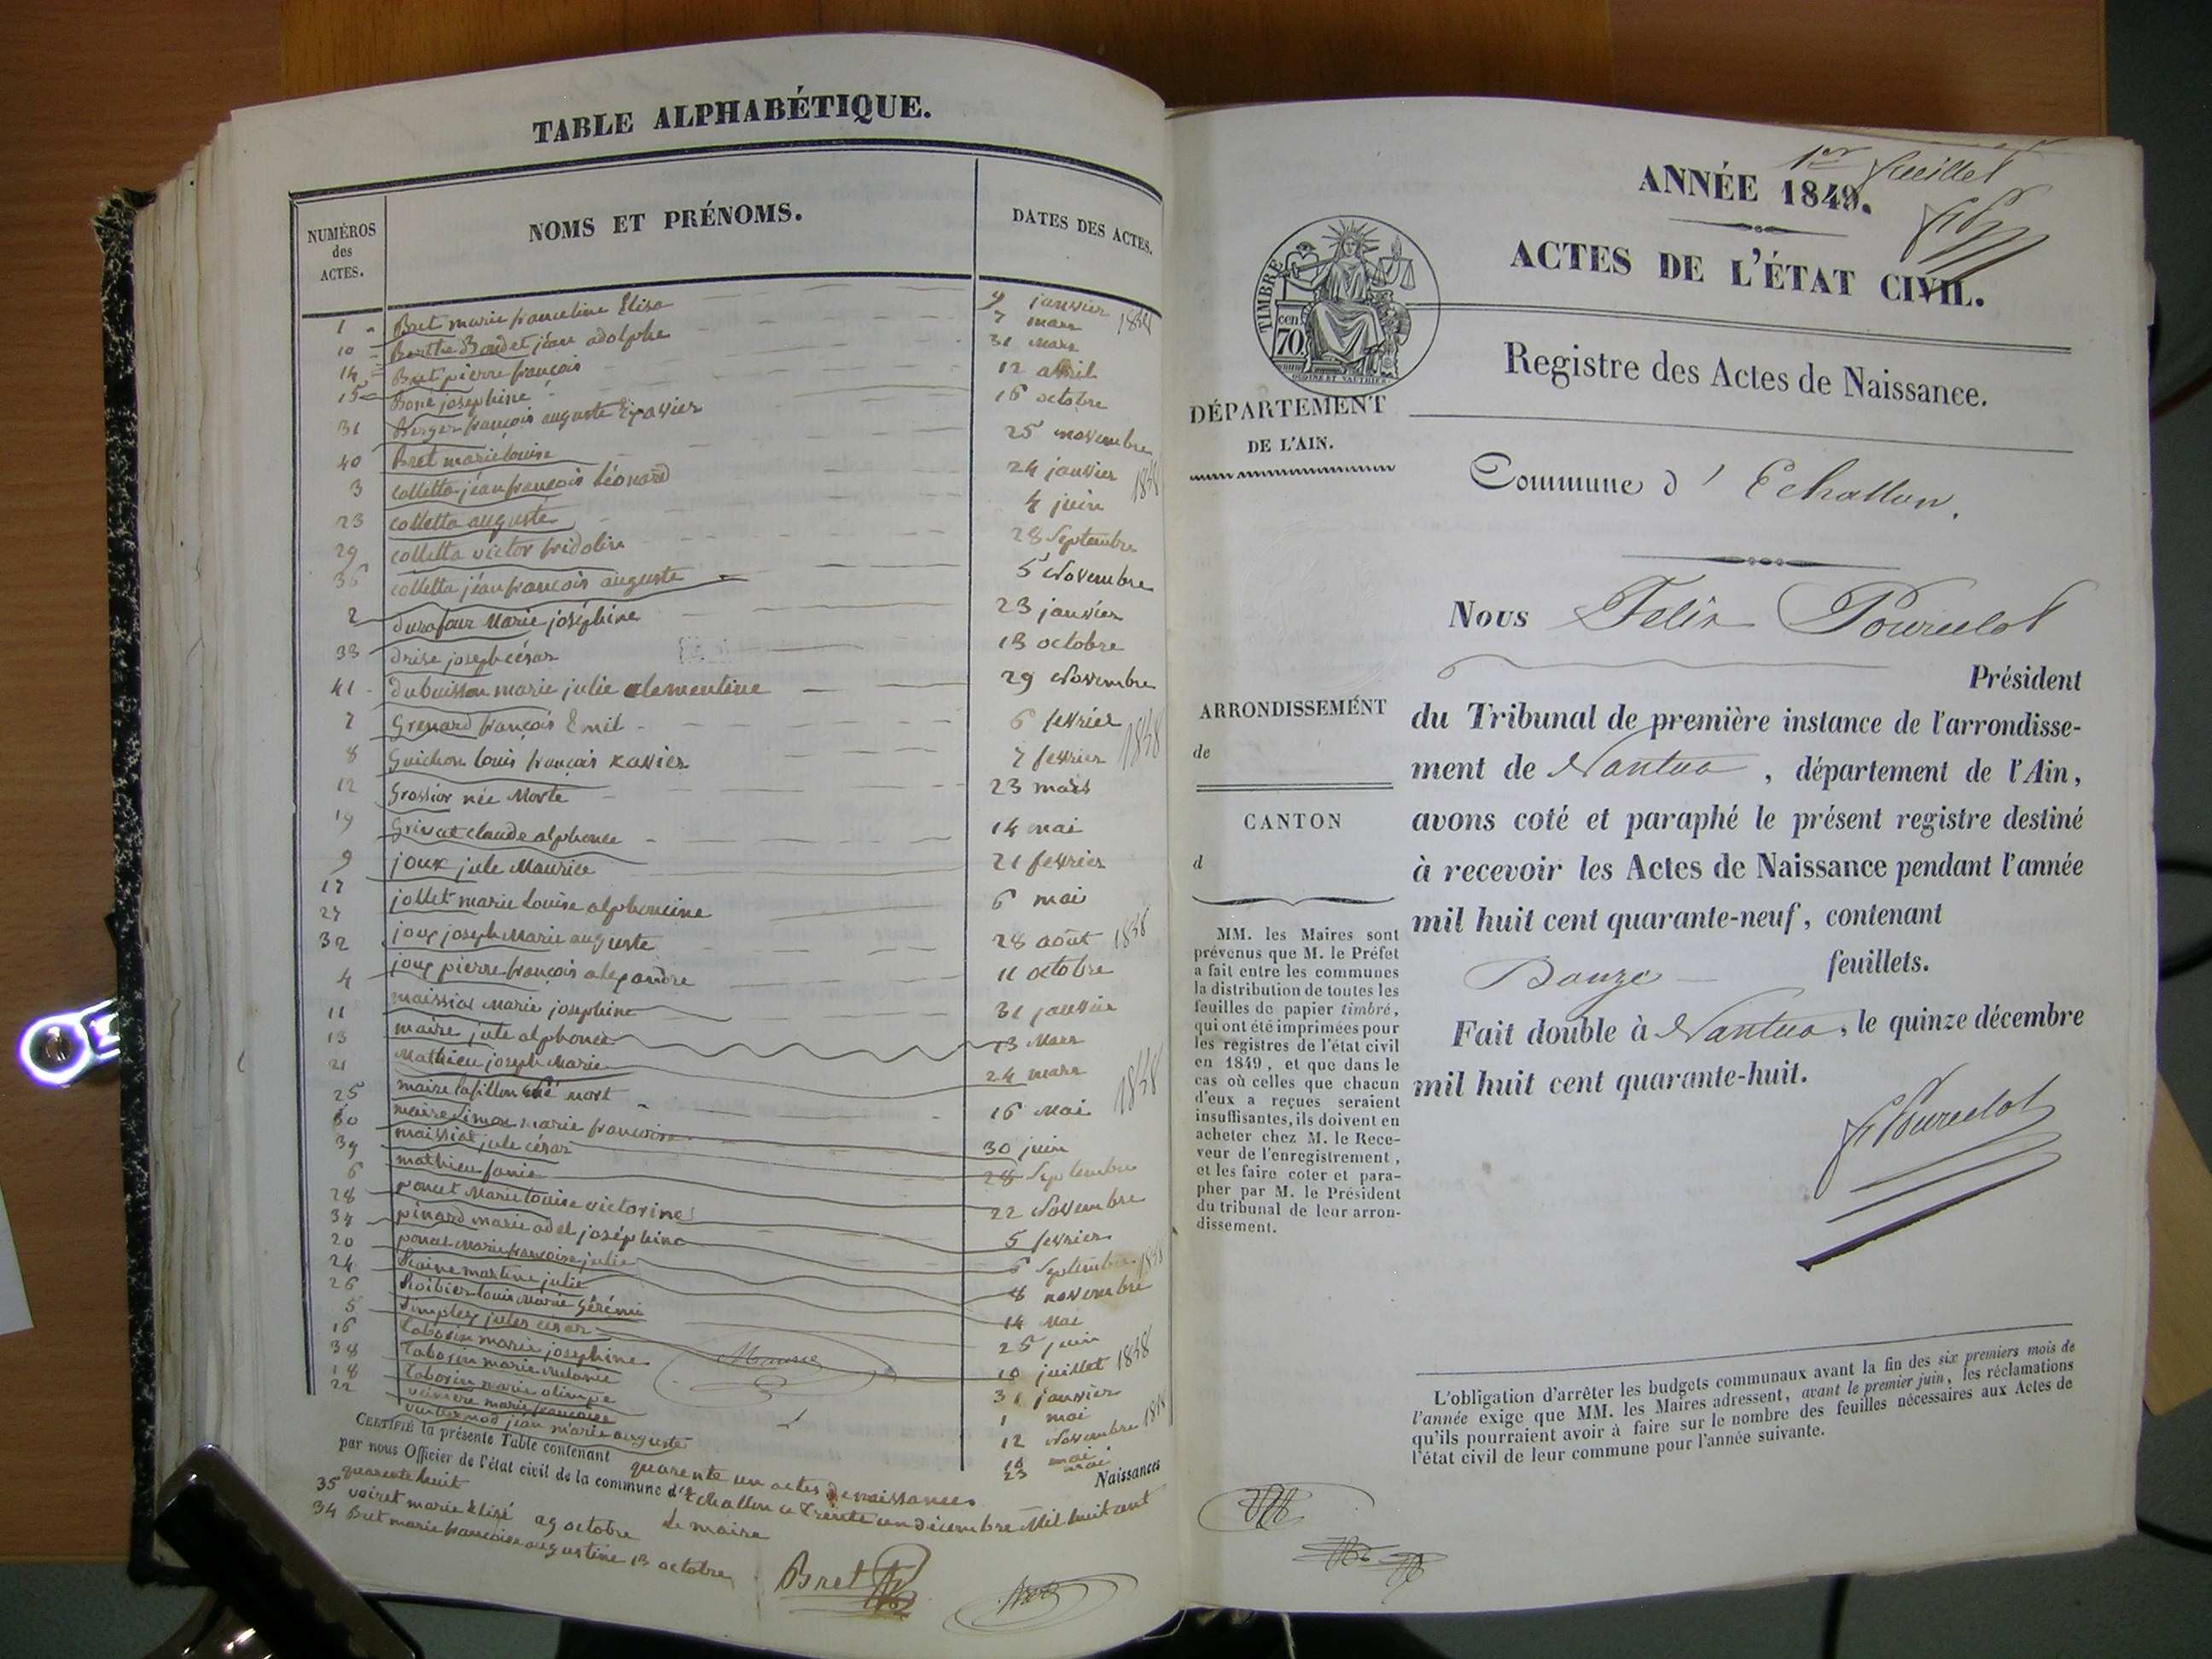 TABLE ALPHABÉTIQUE.
NUMÉROS des ACTES.
NOMS ET PRÉNOMS.
DATES DES ACTES.
1 Bret marie franceline Elisa 9 janvier 1848
10 Berthe Baudet jéan adolphe 7 mars
14 Bret pierre françois 31 Mars
15 Bone joséphine 12 abril
31 Berger françois auguste Exavier 16 octobre
40 Bret marie louise 25 novembre
3 colletta jéan françois Léonard 24 janvier 1848
23 colletta auguste 4 juin
29 colletta victor fridolin 28 Septembre
36 colletta jéan françois auguste 5 Novembre
2 durafour Marie joséphine 23 janvier
33 drise joseph césar 13 octobre
41 dubuisson marie julie clementine 29 Novembre
7 Grenard françois Emil 6 fevrier 1848
8 Guichon louis françois xavier 7 fevrier
12 Grossior née Morte 23 mars
19 Grivat claude alphonce 14 mai
9 joux jule Maurice 21 fevrier
17 jollet marie Louise alphoncine 6 mai
27 joux joseph Marie auguste 28 août 1848
32 joux pierre françois alexandre 11 octobre
4 maissiat Marie josephine 31 janvier
11 maire jule alphonce 13 Mars
13 Mathieu joseph Marie 24 mars
21 maire lafillon né mort 16 Mai 1848
25 maire Simon marie françoise 30 juin
30 maissiat jule césar 28 Septembre
39 mathieu fanie 22 Novembre
6 poncet Marie Louise victorine 5 fevrier
28 pinard marie adel joséphine 6 Septembre 1848
37 poncet Marie françoise julie 8 novembre
20 Raine martine julie 14 Mai
24 Roibier louis Marie Gérémi 25 juin
26 Simplex jules cesar 10 juillet 1848
5 Tabouin marie josephine 31 janvier
16 Tabouin marie melanie 1 mai
38 Tabouin marie olimpe 12 Novembre 1848
18 marie françoise 10 mai
22 jéan marie auguste 23 mai
CERTIFIÉ la présente Table contenant quarente un actes de naissances Naissances
par nous Officier de l'état civil de la commune d'Echallon ce Trente un décembre Mil huit cent
quarente huit
35 voiret marie Elisé 29 octobre Le maire
34 Bret marie françoise augustine 13 octobre
Bret
1er feuillet
ANNÉE 1849.
ACTES DE L'ÉTAT CIVIL.
TIMBRE
cen. 70.
Registre des Actes de Naissance.
DÉPARTEMENT
DE L'AIN.
Commune d'Echallon.
Nous Felix Pourcelot
Président
ARRONDISSEMENT
de
CANTON
d
du Tribunal de première instance de l'arrondisse-
ment de Nantua, département de l'Ain,
avons coté et paraphé le présent registre destiné
à recevoir les Actes de Naissance pendant l'année
mil huit cent quarante-neuf, contenant
Douze feuillets.
Fait double à Nantua, le quinze décembre
mil huit cent quarante-huit.
F Pourcelot
MM. les Maires sont
prévenus que M. le Préfet
a fait entre les communes
la distribution de toutes les
feuilles de papier timbré,
qui ont été imprimées pour
les registres de l'état civil
en 1849, et que dans le
cas où celles que chacun
d'eux a reçues seraient
insuffisantes, ils doivent en
acheter chez M. le Rece-
veur de l'enregistrement,
et les faire coter et para-
pher par M. le Président
du tribunal de leur arron-
dissement.
L'obligation d'arrêter les budgets communaux avant la fin des six premiers mois de
l'année exige que MM. les Maires adressent, avant le premier juin, les réclamations
qu'ils pourraient avoir à faire sur le nombre des feuilles nécessaires aux Actes de
l'état civil de leur commune pour l'année suivante.